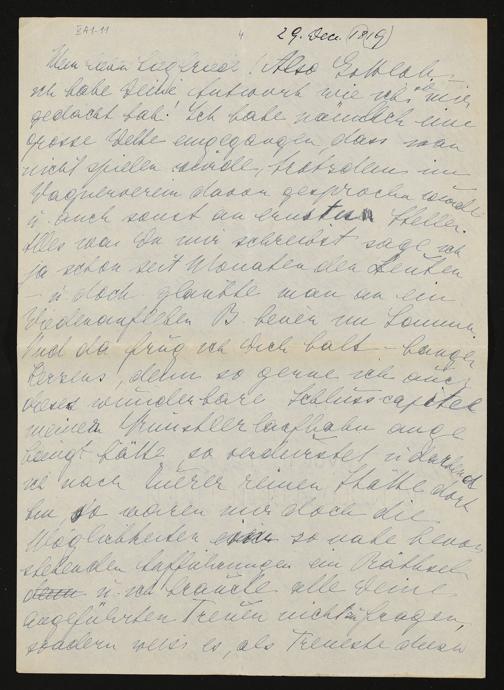 II A1-11
4
29. Dec. (1919)
Mein lieber Siegfried! Also Gottlob –
ich habe Deine Antwort wie ich's mir
gedacht hab! Ich habe nämlich eine
grosse Wette eingegangen, dass man
nicht spielen würde, trotzdem im
Wagnerverein davon gesprochen wurde
u. auch sonst an ernsten Stellen.
Alles was Du mir schreibst sage ich
ja schon seit Monaten den Leuten
– u. doch glaubte man an ein
Wiederaufleben B. heuer im Sommer.
Und da frug ich Dich halt – bangen
Herzens, denn so gerne ich auch
dieses wunderbare Schlusscapitel
meiner Künstlerlaufbahn ange
hängt hätte, so
ich nach Eurer reinen Stätte
bin, so waren mir doch die
Möglichkeiten so nahe bevor
stehenden Aufführungen ein Räthsel
u. ich brauchte alle Deine
angeführten Treuen nicht zu fragen,
sondern weiss es, als Treueste